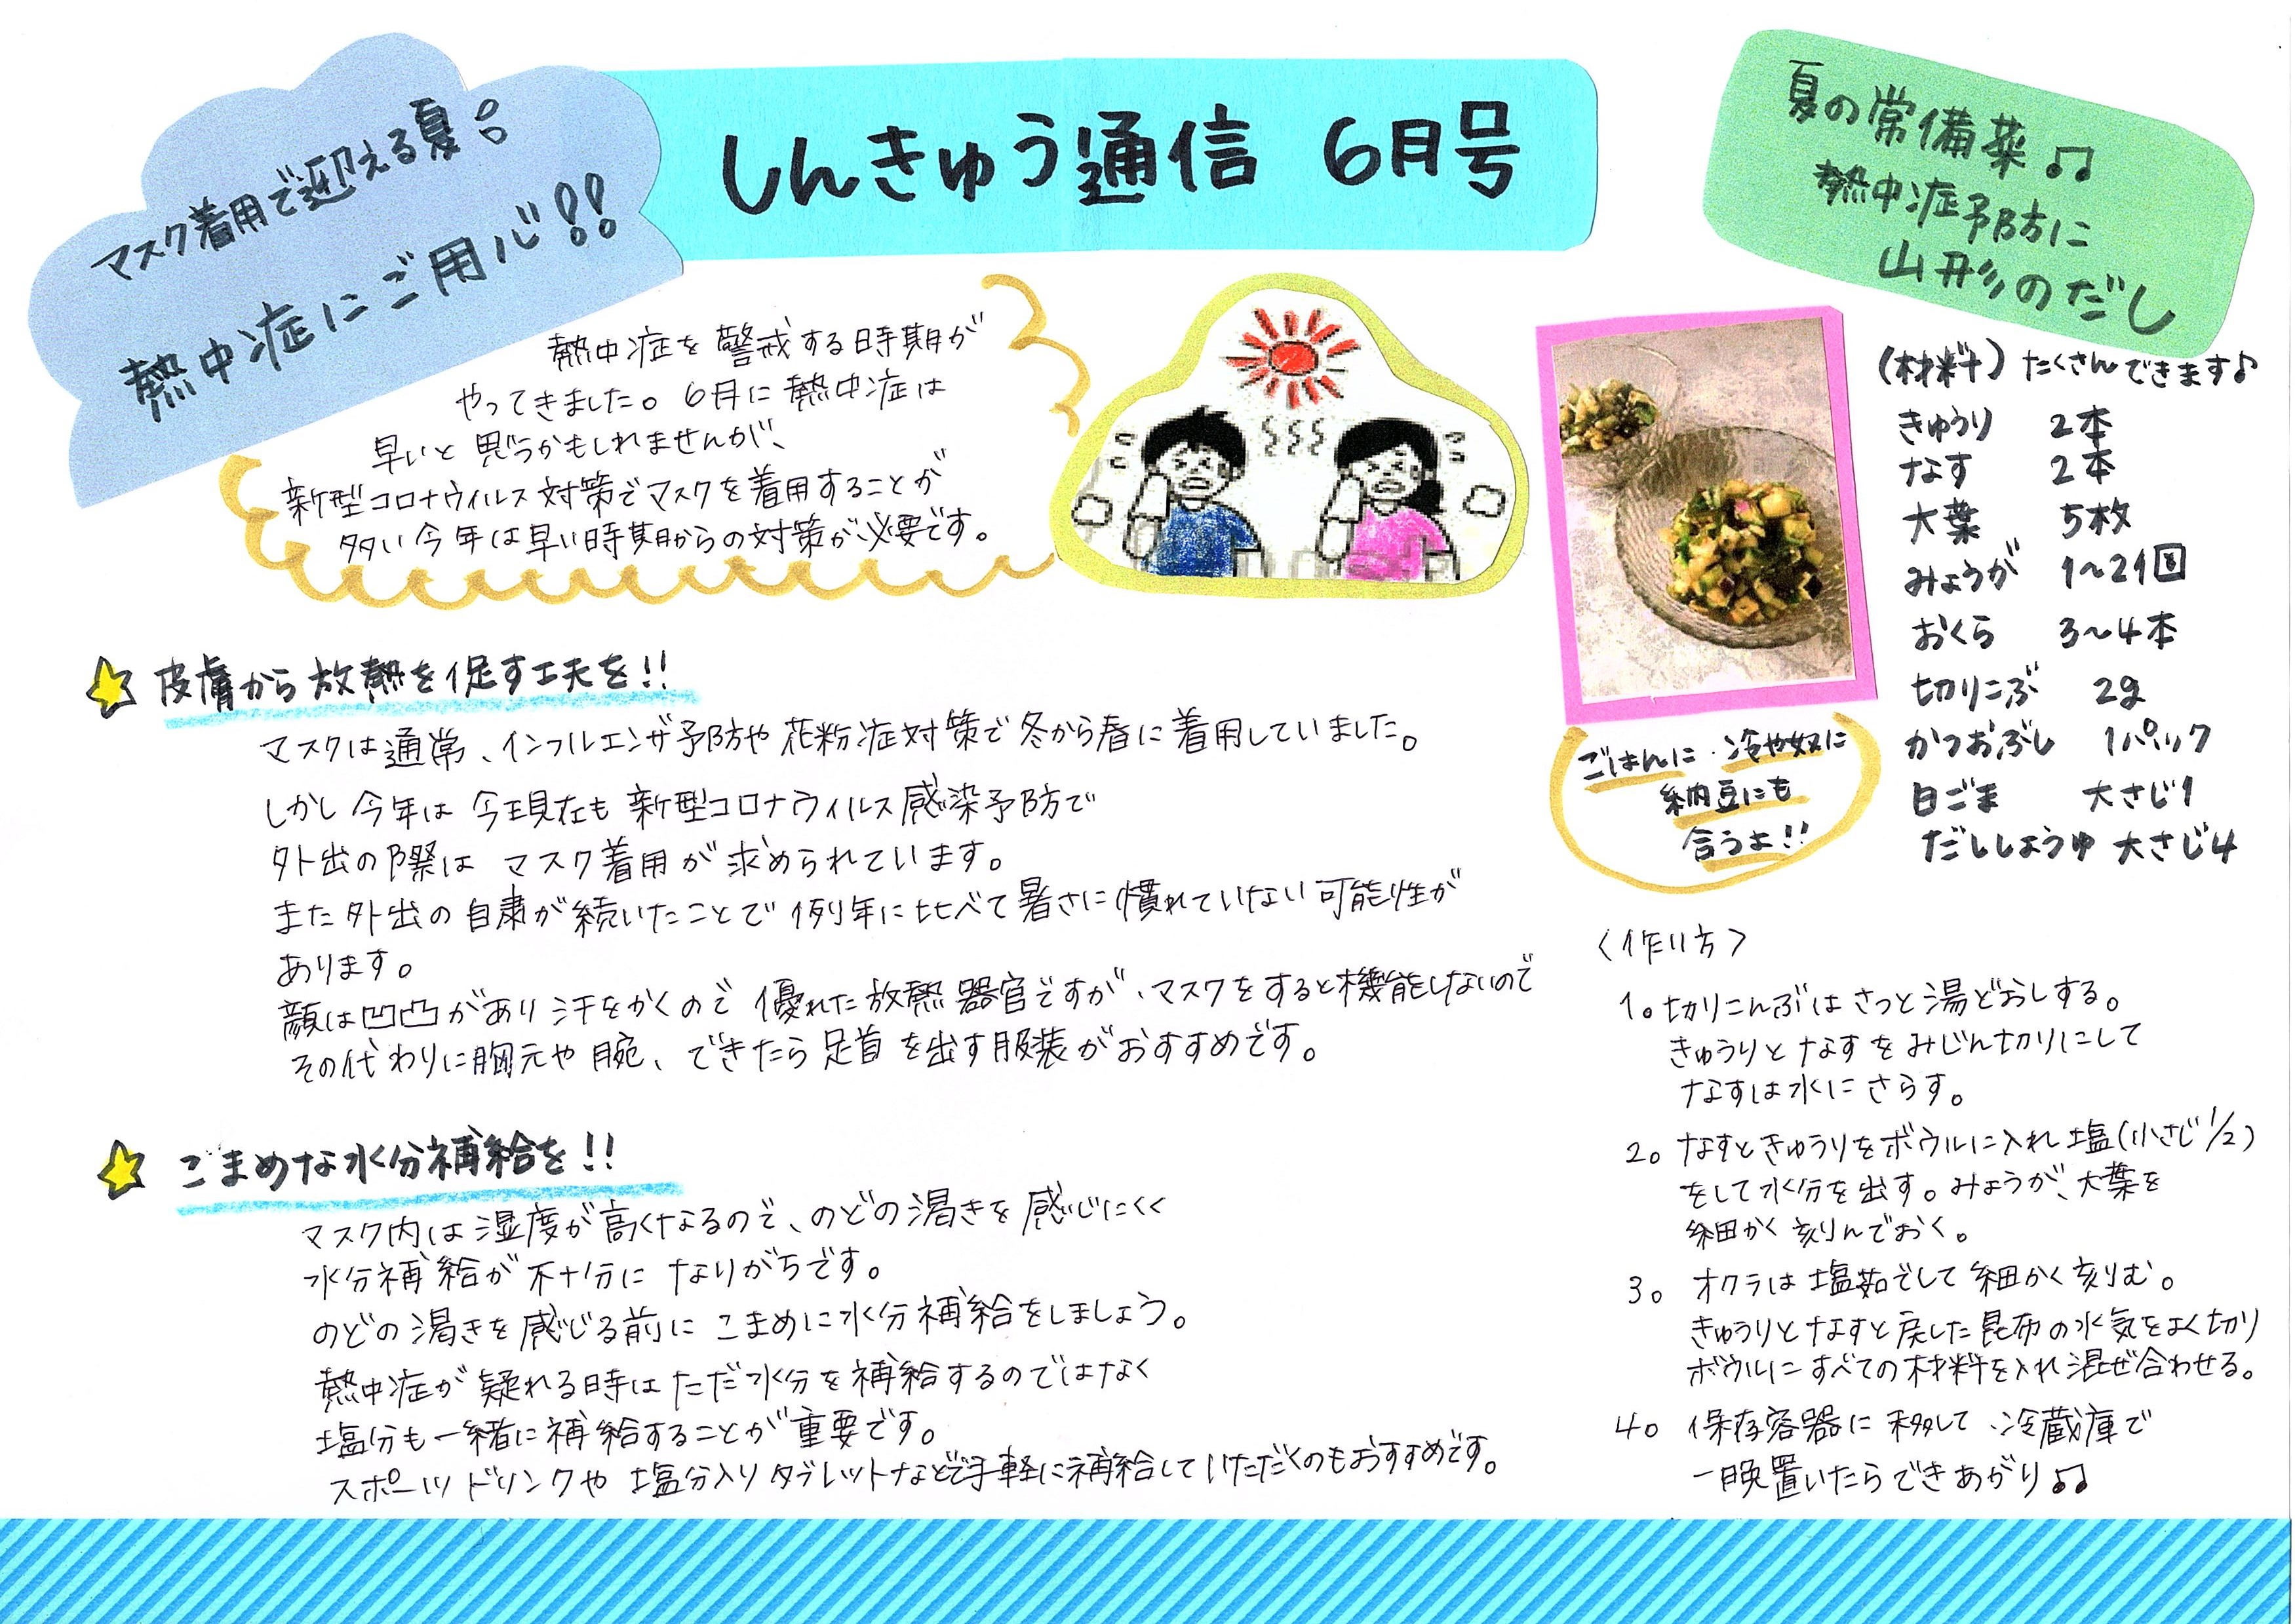 しんきゅう通信 6月号
マスク着用で迎える夏。
熱中症にご用心!!
熱中症を警戒する時期が
やってきました。6月に熱中症は
早いと思うかもしれませんが、
新型コロナウィルス対策でマスクを着用することが
多い今年は早い時期からの対策が必要です。
皮膚から放熱を促す工夫を!!
マスクは通常、インフルエンザ予防や花粉症対策で冬から春に着用していました。
しかし今年は今現在も新型コロナウィルス感染予防で
外出の際はマスク着用が求められています。
また外出の自粛が続いたことで例年に比べて暑さに慣れていない可能性が
あります。
顔は凹凸があり汗をかくので優れた放熱器官ですが、マスクをすると機能しないので
その代わりに胸元や腕、できたら足首を出す服装がおすすめです。
こまめな水分補給を!!
マスク内は湿度が高くなるので、のどの渇きを感じにくく
水分補給が不十分になりがちです。
のどの渇きを感じる前にこまめに水分補給をしましょう。
熱中症が疑れる時はただ水分を補給するのではなく
塩分も一緒に補給することが重要です。
スポーツドリンクや塩分入りタブレットなどで手軽に補給していただくのもおすすめです。
夏の常備薬♫
熱中症予防に
山形のだし
(材料)たくさんできます♪
きゅうり 2本
なす 2本
大葉 5枚
みょうが 1~2個
おくら 3~4本
切りこぶ 2g
かつおぶし 1パック
白ごま 大さじ1
だししょうゆ 大さじ4
ごはんに・冷や奴に
納豆にも
合うよ!!
〈作り方〉
1。切りこんぶはさっと湯どおしする。
きゅうりとなすをみじん切りにして
なすは水にさらす。
2。なすときゅうりをボウルに入れ塩(小さじ1/2)
をして水分を出す。みょうが、大葉を
細かく刻んでおく。
3。オクラは塩茹でして細かく刻む。
きゅうりとなすと戻した昆布の水気をよく切り
ボウルにすべての材料を入れ混ぜ合わせる。
4。保存容器に移して、冷蔵庫で
一晩置いたらできあがり♫